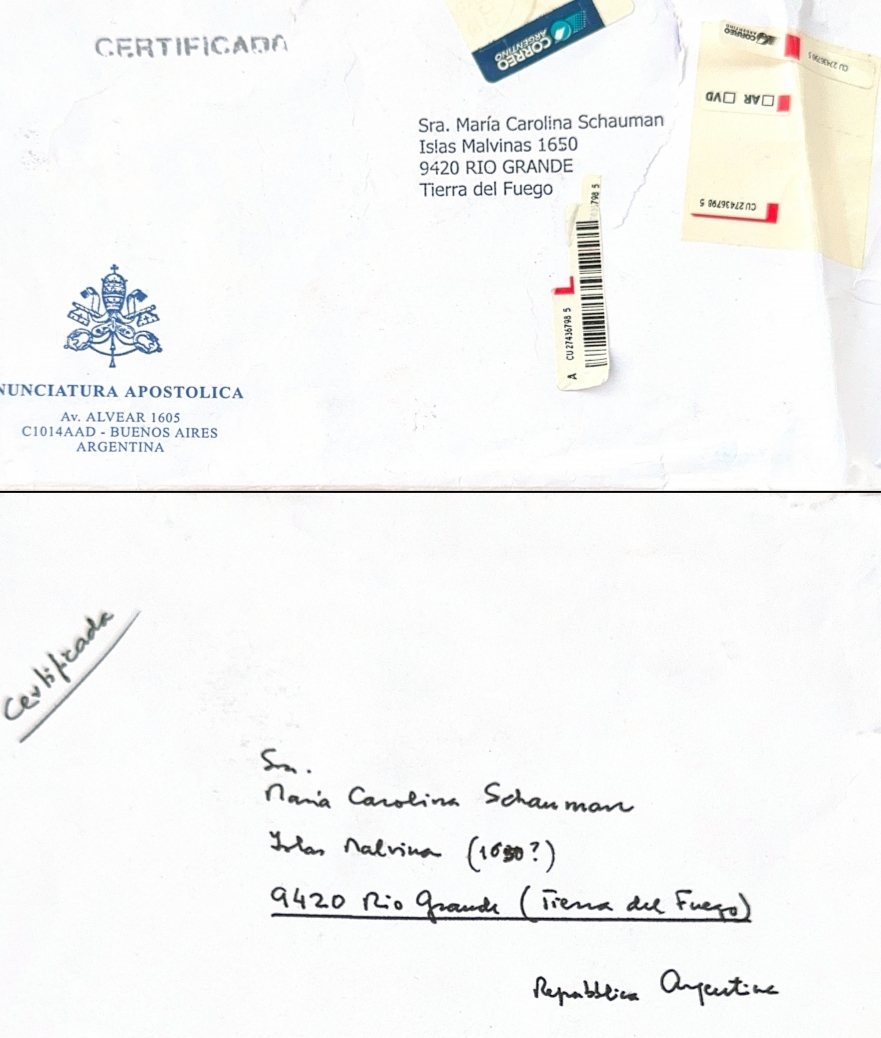 CERTIFICADA
CORREO
ARGENTINO
CORREO
ARGENTINO
CU 27436798 5
AR VD
CU 27436798 5
Sra. María Carolina Schauman
Islas Malvinas 1650
9420 RIO GRANDE
Tierra del Fuego
798 5
A CU 27436798 5
NUNCIATURA APOSTOLICA
Av. ALVEAR 1605
C1014AAD - BUENOS AIRES
ARGENTINA
Certificada
Sra.
María Carolina Schauman
Islas Malvina (1650?)
9420 Rio Grande (Tierra del Fuego)
Repubblica Argentina